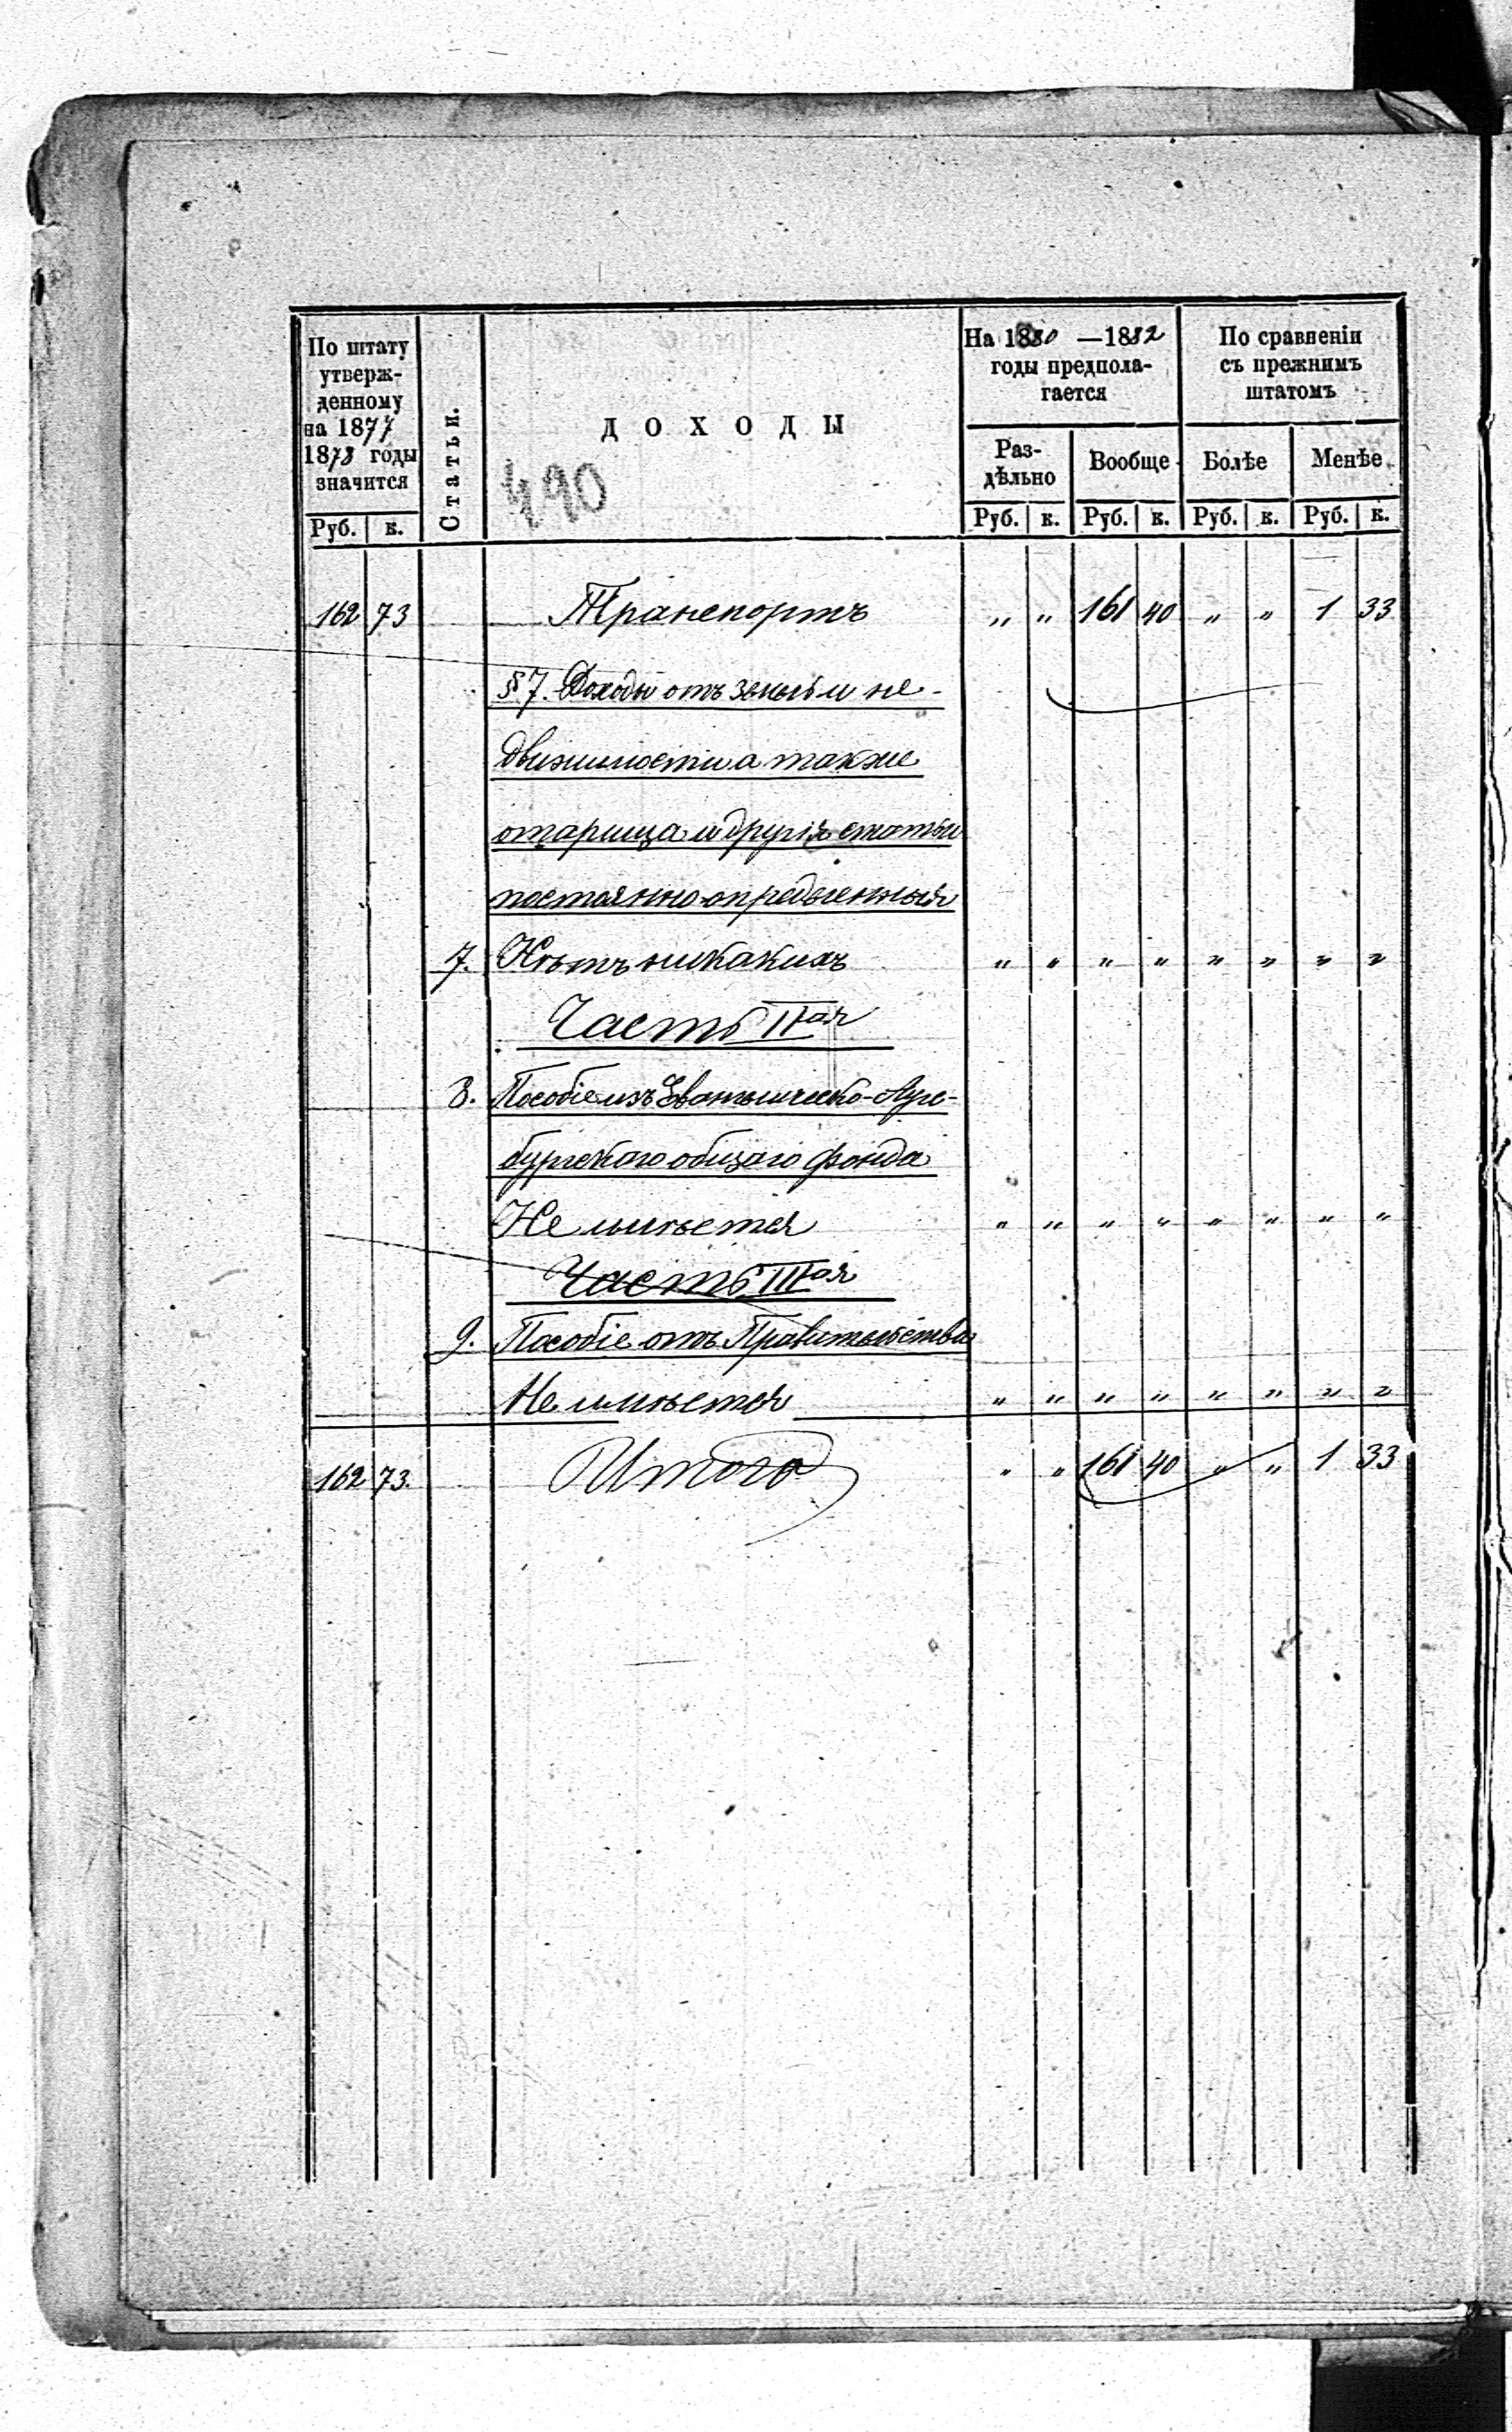 По штату
утверж-
денному
на 1877
1878 годы
значится
Руб. к.
Статьи.
ДОХОДЫ
490
На 1880 —1882
годы предпола-
гается
Раз-
дѣльно
Вообще
Руб. к. Руб. к.
По сравненіи
съ прежнимъ
штатомъ
Болѣе Менѣе
Руб. к. Руб. к.
162 73 Транспортъ „ „ 161 40 „ „ 1 33
§ 7. Доходы отъ земель и не-
движимости а также
и другія статьи
постоянно-опредѣленныя
7. Нѣтъ никакихъ „ „ „ „ „ „ „ „
Часть IIая
8. Пособіе изъ Евангелическо-
бургскаго общаго фонда
Не имѣется „ „ „ „ „ „ „ „
Часть IIIая
9. Пособіе отъ Правительства
Не имѣется „ „ „ „ „ „ „ „
162 73. Итого „ „ 161 40 „ „ 1 33